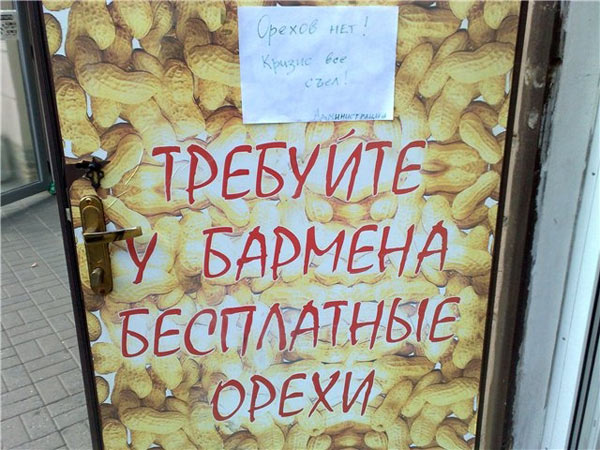 Орехов нет!
Кризис все
съел!
Администрация
ТРЕБУЙТЕ
У БАРМЕНА
БЕСПЛАТНЫЕ
ОРЕХИ